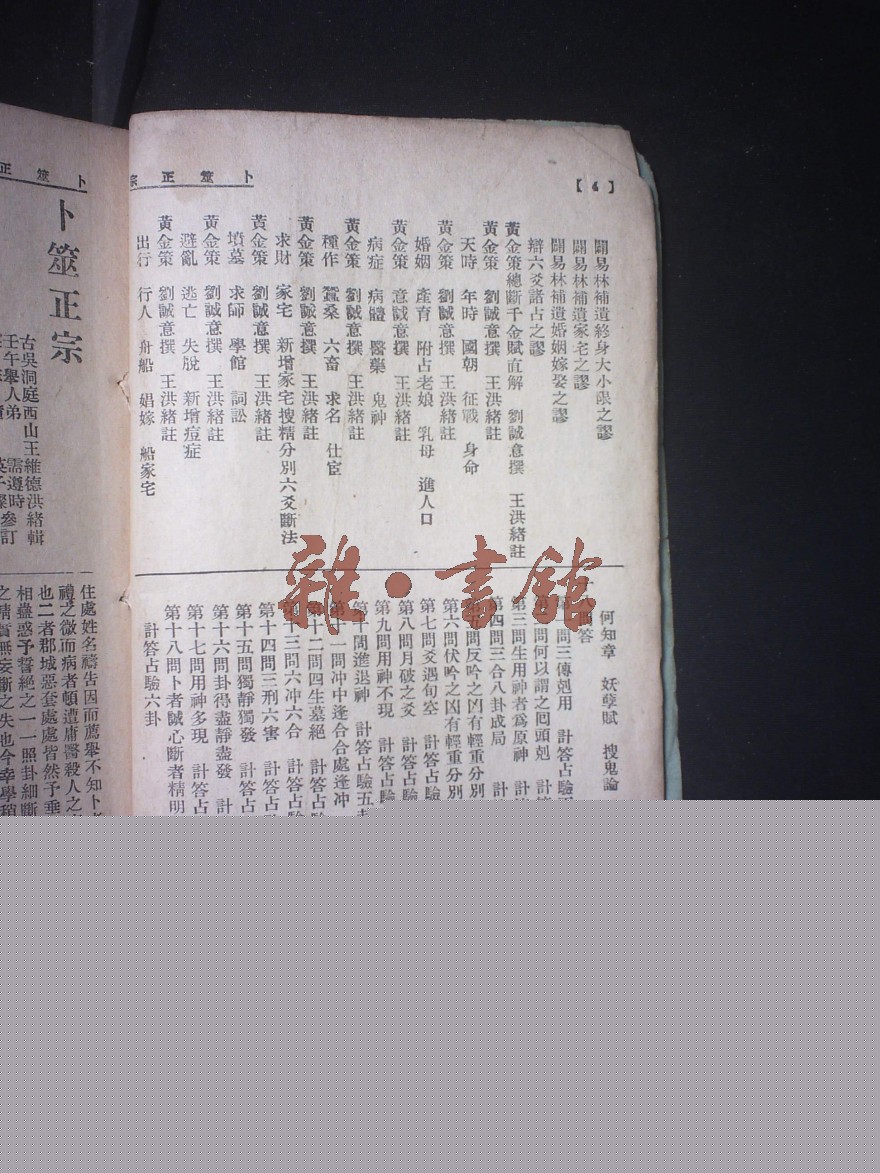 【4】
卜筮正宗
闢易林補遺終身大小限之謬
闢易林補遺家宅之謬
闢易林補遺婚姻嫁娶之謬
辯六爻諸占之謬
黃金策總斷千金賦直解 劉誠意撰 王洪緒註
黃金策 劉誠意撰 王洪緒註
天時 年時 國朝 征戰 身命
黃金策 劉誠意撰 王洪緒註
婚姻 產育 附占老娘 乳母 進人口
黃金策 意誠意撰 王洪緒註
病症 病體 醫藥 鬼神
黃金策 劉誠意撰 王洪緒註
種作 蠶桑 六畜 求名 仕宦
黃金策 劉誠意撰 王洪緒註
求財 家宅 新增家宅搜精分別六爻斷法
黃金策 劉誠意撰 王洪緒註
墳墓 求師 學館 詞訟
黃金策 劉誠意撰 王洪緒註
避亂 逃亡 失脫 新增痘症
黃金策 劉誠意撰 王洪緒註
出行 行人 舟船 娼嫁 船家宅
何知章 妖孽賦 搜鬼論
問答
問三傳剋用 計答占驗
問何以謂之囘頭剋 計答
第三問生用神者爲原神 計
第四問三合八卦成局 計
第五問反吟之凶有輕重分別
第六問伏吟之凶有輕重分別
第七問爻遇旬空 計答占驗
第八問月破之爻 計答占驗
第九問用神不現 計答占驗
第十問進退神 計答占驗五
第十一問冲中逢合合處逢冲
第十二問四生墓絕 計答占
第十三問六冲六合 計答占
第十四問三刑六害 計答占
第十五問獨靜獨發 計答占
第十六問卦得盡靜盡發 計
第十七問用神多現 計答占
第十八問卜者誠心斷者精明
計答占驗六卦
卜筮正
卜筮正宗
古吳洞庭西山王維德洪緒輯
壬午舉人弟 需遵時參訂
住處姓名禱告因而薦舉不知卜
禮之微而病者頓遭庸醫殺人之
也二者郡城惡套處處皆然予垂
相蠱惑予誓絕之一一照卦細斷
之精嘗無妄斷之失也今幸學稍
雜·書館